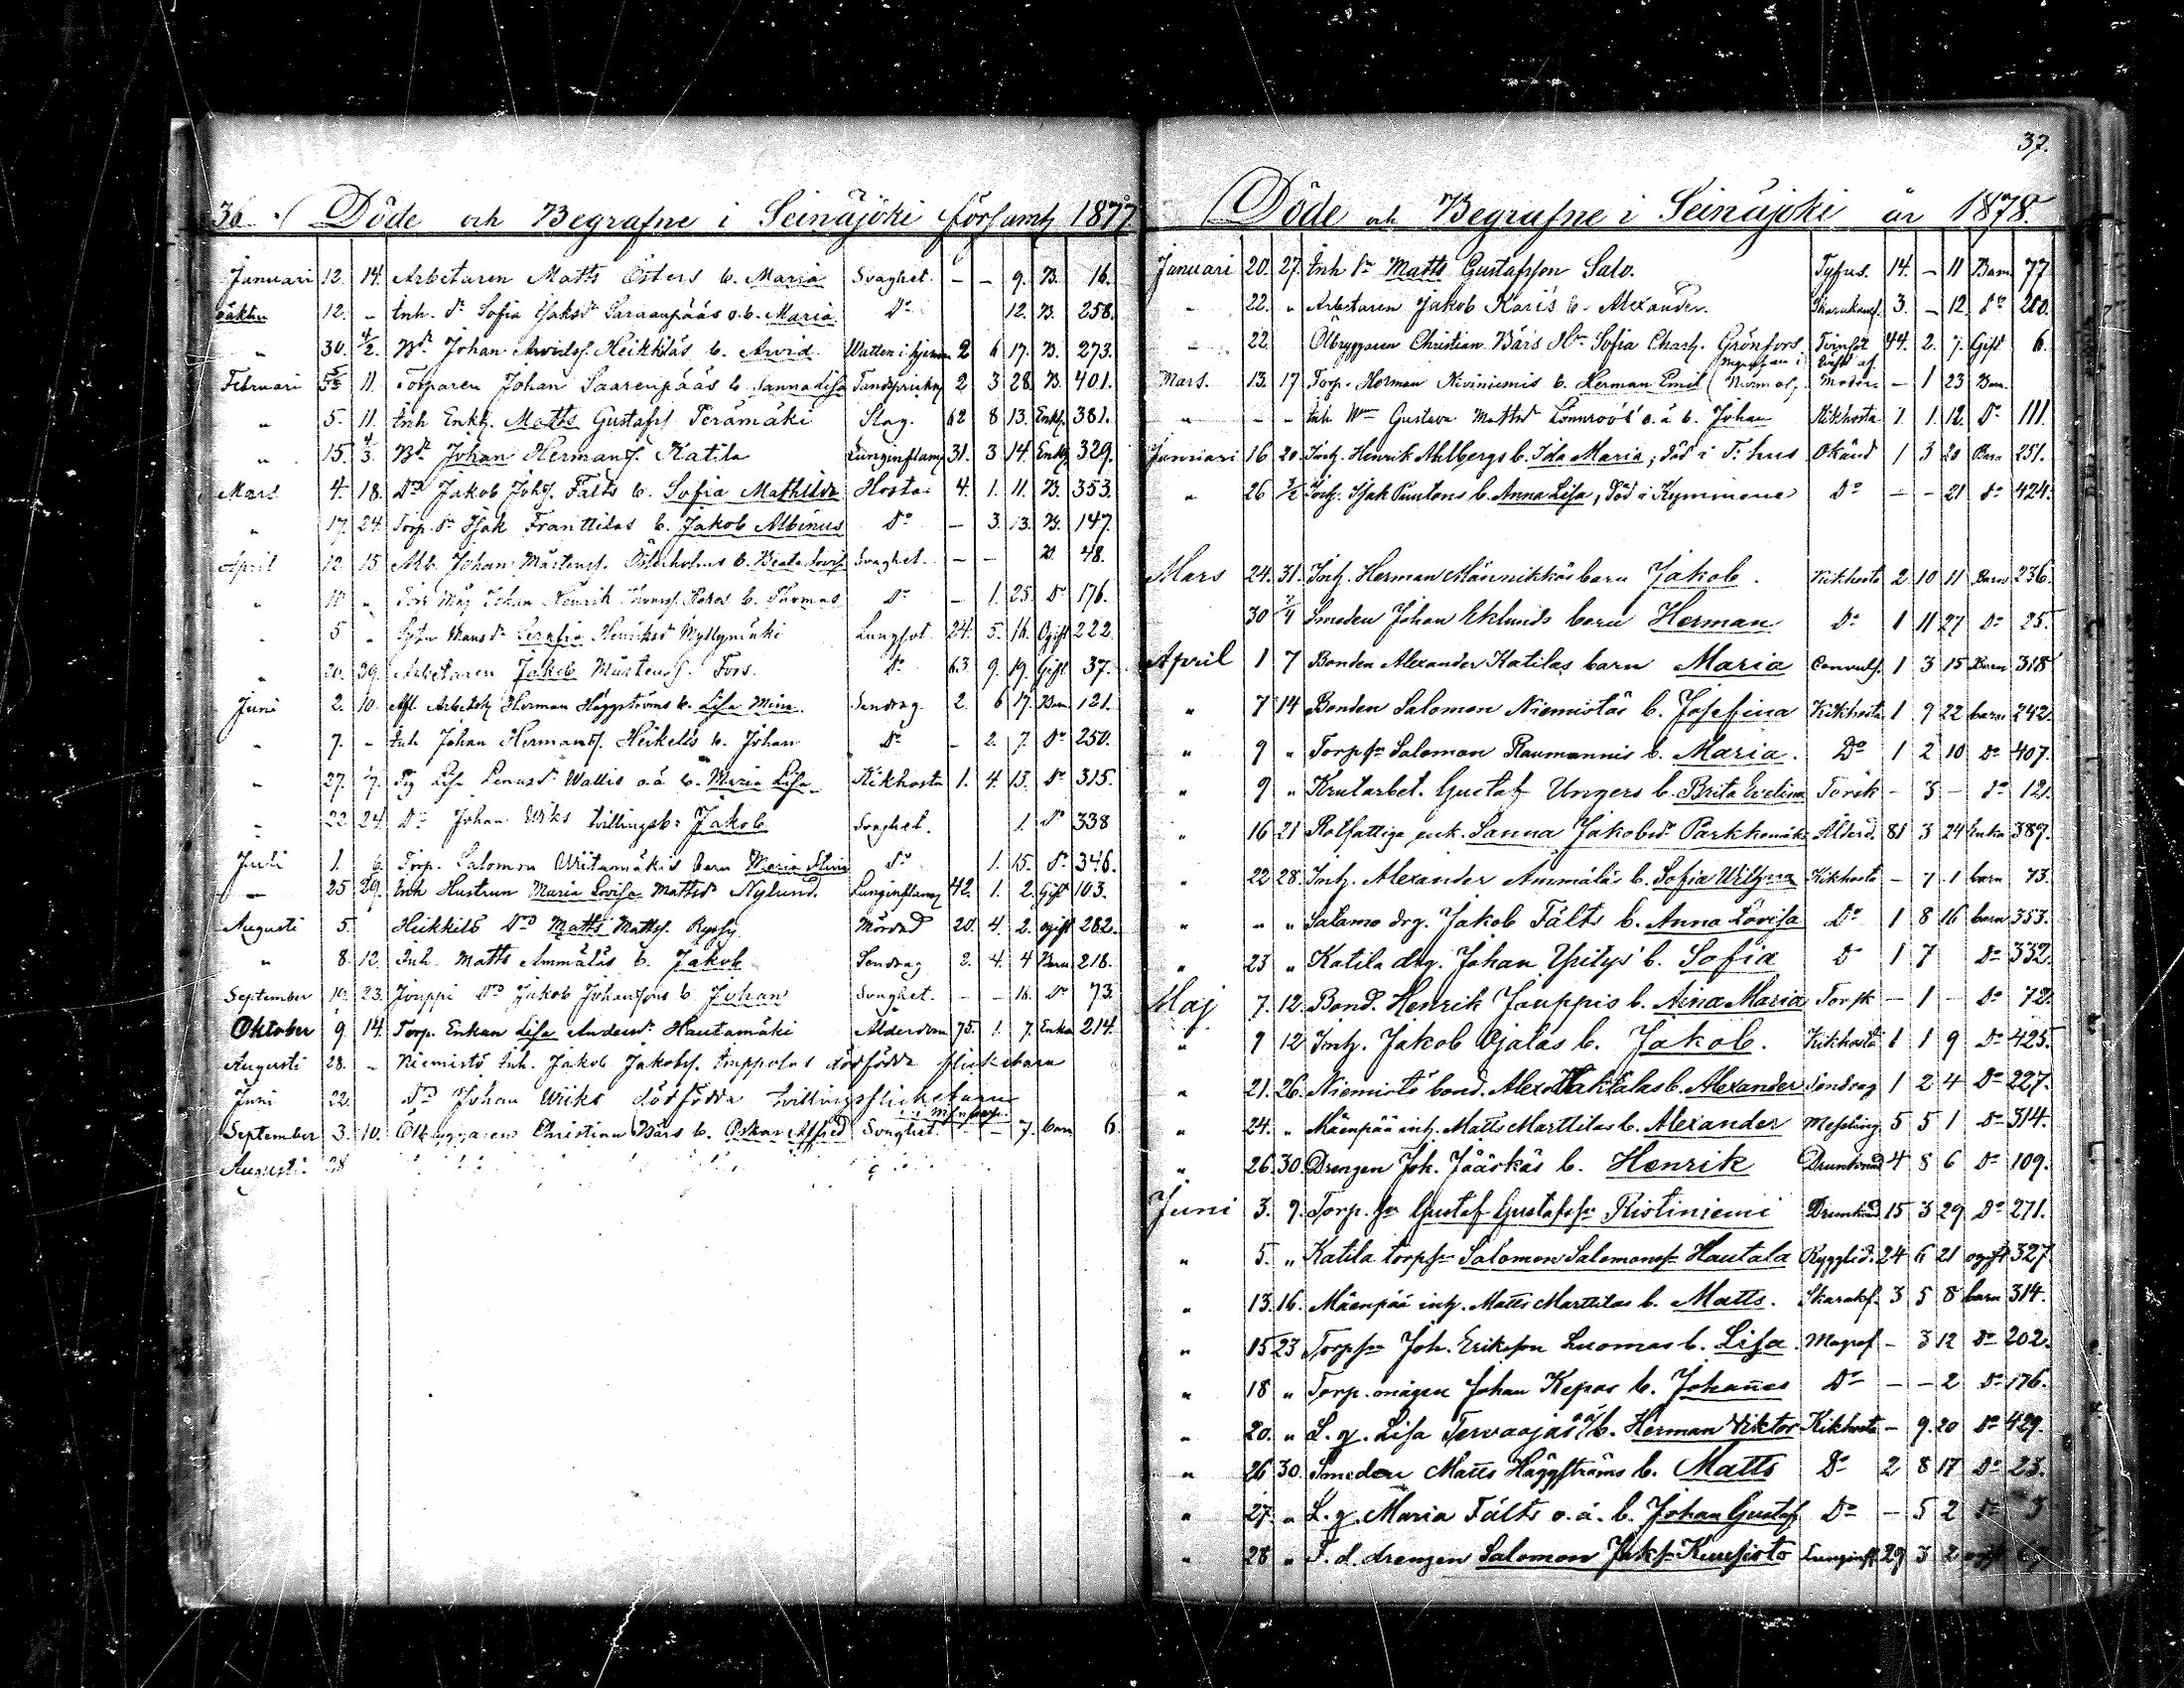 36. Döde och Begrafne i Seinäjoki förs amtz 1877
Januari 12. 14. Arbetaren Matts Östers b. Maria Svaghet. - - 9. B. 16.
12. - Inh. dr Sofia Jaksdr Saraanpääs o.ä. b. Maria Do 12. B. 258.
" 30. 4/2. Bd. Johan Arvidss. Heikkiläs b. Arvid Watten i hjernan 2 6 17. B. 273.
Februari 5 11. Torparen Johan Saarenpääs b. Sanna Lisa Tandsprickn 2 3 28. B. 401.
" 5. 11. Inh Enkl. Matts Gustafss Perämäki Slag. 62 8 13. Enkl. 381.
" 15. 4/3. Bd. Johan Hermans. Katila Lunginflam 31. 3 14. Enkl 329.
Mars 4. 18. Do Jakob Johs. Fälts b. Sofia Mathilda Hosta 4. 1. 11. B. 353.
" 17. 24. Torp. sn Isak Franttilas b. Jakob Albinus Do - 3. 13. B. 147.
April 12 15. Arb. Johan Mårtenss. b. Beata Lovis Svaghet. - - 21. 48.
" " Torp Måg Johan Henrik b. Thomas Do - 1. 25. Do 176.
" 5 " Serafia Henriksdr Myllymäki Lungsot. 24. 5. 16. Ogift 222.
" 20. 29. Arbetaren Jakob Mårtenss. Fors. Do 63. 9. 19. Gift 37.
Juni 2. 10. Afl. Arbetskl Herman Häggströms b. Lisa Mina. Sendrag. 2. 6 17. Barn 121.
" 7. - Inh Johan Hermans. Heikelis b. Johan Do - 2. 7. Do 250.
" 27. 1/7. Pig Lisa Wallis o.ä b. Maria Lisa Kikhosta 1. 4. 13. Do 315.
" 22 24. Do Johan Wiks tvillingsb. Jakob Svaghet. 1. Do 338
Juli 1. 6. Torp. Salomon Wiitamäkis barn Maria Do 1. 15. Do 346.
- 25 29. Inh Hustrun Maria Lovisa Mattsdr Nylund. Lunginflam 42. 1. 2. Gift 103.
Augusti 5. Heikkilä Do Matts Mattss. Ryssy Mördad 20. 4. 2. ogift 282.
" 8. 12. Inh. Matts Ammäläs b. Jakob Sendrag 2. 4. 4 Barn 218.
September 19. 23. Jouppi Do Jakob Johanssons b Johan Svaghet. - - 16. Do 73.
Oktober 9. 14. Torp. Enkan Lisa Andersdr Hautamäki Ålderdom 75. 1. 7. Enka 214.
Augusti 28. - Niemistö Inh. Jakob Jakobs. Imppolas dödfödda flickebarn
Juni 22. Do Johan Wiiks dödfödda tvillingsflickebarn
September 3. 10. Ölbryggaren Christian Bärs b. Oskar Alfred Svaghet. - - 7. barn 6
Augusti. 28
37.
Döde och Begrafne i Seinäjoki år 1878.
Januari 20. 27. Inh sn Matts Gustafsson Salo. Tyfus. 14. - 11 Barn. 77
" 22. " Arbetaren Jakob Karis b. Alexander. Skarlakansf. 3. - 12. Do 280.
" 22. Ölbryggaren Christian Bärs Hu Sofia Charl. Grönfors 44. 2. 7. Gift 6.
Mars. 13. 17 Torp. Herman Niviniemis b. Herman Emil - 1 23 Barn
" - - Inh Wm Gustava Mattsdr Lönnroos' o.ä b. Johan Kikhosta 1 1. 12. Do 111.
Januari 16 20 Inh. Henrik Ahlbergs b. Ida Maria; död i T. hus Okänd 1 3 20 Barn 251.
" 26 3/2 Inh. Isak Puntans b. Anna Lisa, död i Kymmene Do - - 21 Do 424.
Mars 24. 31. Inh. Herman Männikkös barn Jakob. Kikhosta 2 10 11 Barn 236.
30 7/4 Smeden Johan Eklunds barn Herman Do 1 11 27 Do 25.
April 1 7 Bonden Alexander Katilas barn Maria Convuls. 1 3 15 Barn 318
" 7 14 Bonden Salomon Niemistös b. Josefina Kikhosta 1 9 22 barn 242.
" 9 " Torpsn Salomon Raumannis b. Maria. Do 1 2 10 Do 407.
" 9 " Krutarbet. Gustaf Ungers b. Brita Evelina Torsk - 3 - Do 121.
" 16 21 Rotfattiga enk. Sanna Jakobsdr Parkkamäki Ålderd. 81 3 24 Enka 389.
" 22 28. Inh. Alexander Ammäläs b. Sofia Wilhma Kikhosta - 7 1 barn 73.
" " " Salamo drg. Jakob Fälts b. Anna Lovisa Do 1 8 16 barn 353.
" 23 " Katila drg. Johan Yritys' b. Sofia Do 1 7 Do 332.
Maj 7. 12. Bond. Henrik Jouppis b. Aina Maria Torsk - 1 - Do 72.
" 9 12 Inh. Jakob Ojalas b. Jakob. Kikhosta 1 1 9 Do 425.
" 21. 26. Niemistö bond. Alex. b. Alexander Sendrag 1 2 4 Do 227.
" 24. " Mäenpää inh. Matts Marttilas b. Alexander Messling 5 5 1 Do 314.
" 26. 30. Drengen Joh. Jääskäs b. Henrik Drunknad 4 8 6 Do 109.
Juni 3. 9. Torp. sn Gustaf Gustafssn Ristiniemi Drunknad 15 3 29 Do 271.
" 5. " Katila torpsn Salomon Salomonsn Hautala Ryggled. 24 6 21 ogift 327
" 13. 16. Mäenpää inh. Matts Marttilas b. Matts. Skarakf. 3 5 8 barn 314.
" 15 23 Torpsn Joh. Eriksson Luomas b. Lisa. Magref - 3 12 Do 202.
" 18 " Torp. mågen Johan Kepos b. Johañes Do - - 2 Do 176.
" 20. " L. q. Lisa Tervaojas o.ä. b. Herman Viktor Kikhosta - 9. 20 Do 429.
" 26 30. Smeden Matts Häggströms b. Matts Do 2 8 17 Do 23.
" 27. " L. q. Maria Fälts o.ä. b. Johan Gustaf Do - 5 2 Do 3
" 28 " F. d. drengen Salomon Jaksn Kuusisto Lunginfl. 29 3 2 ogift